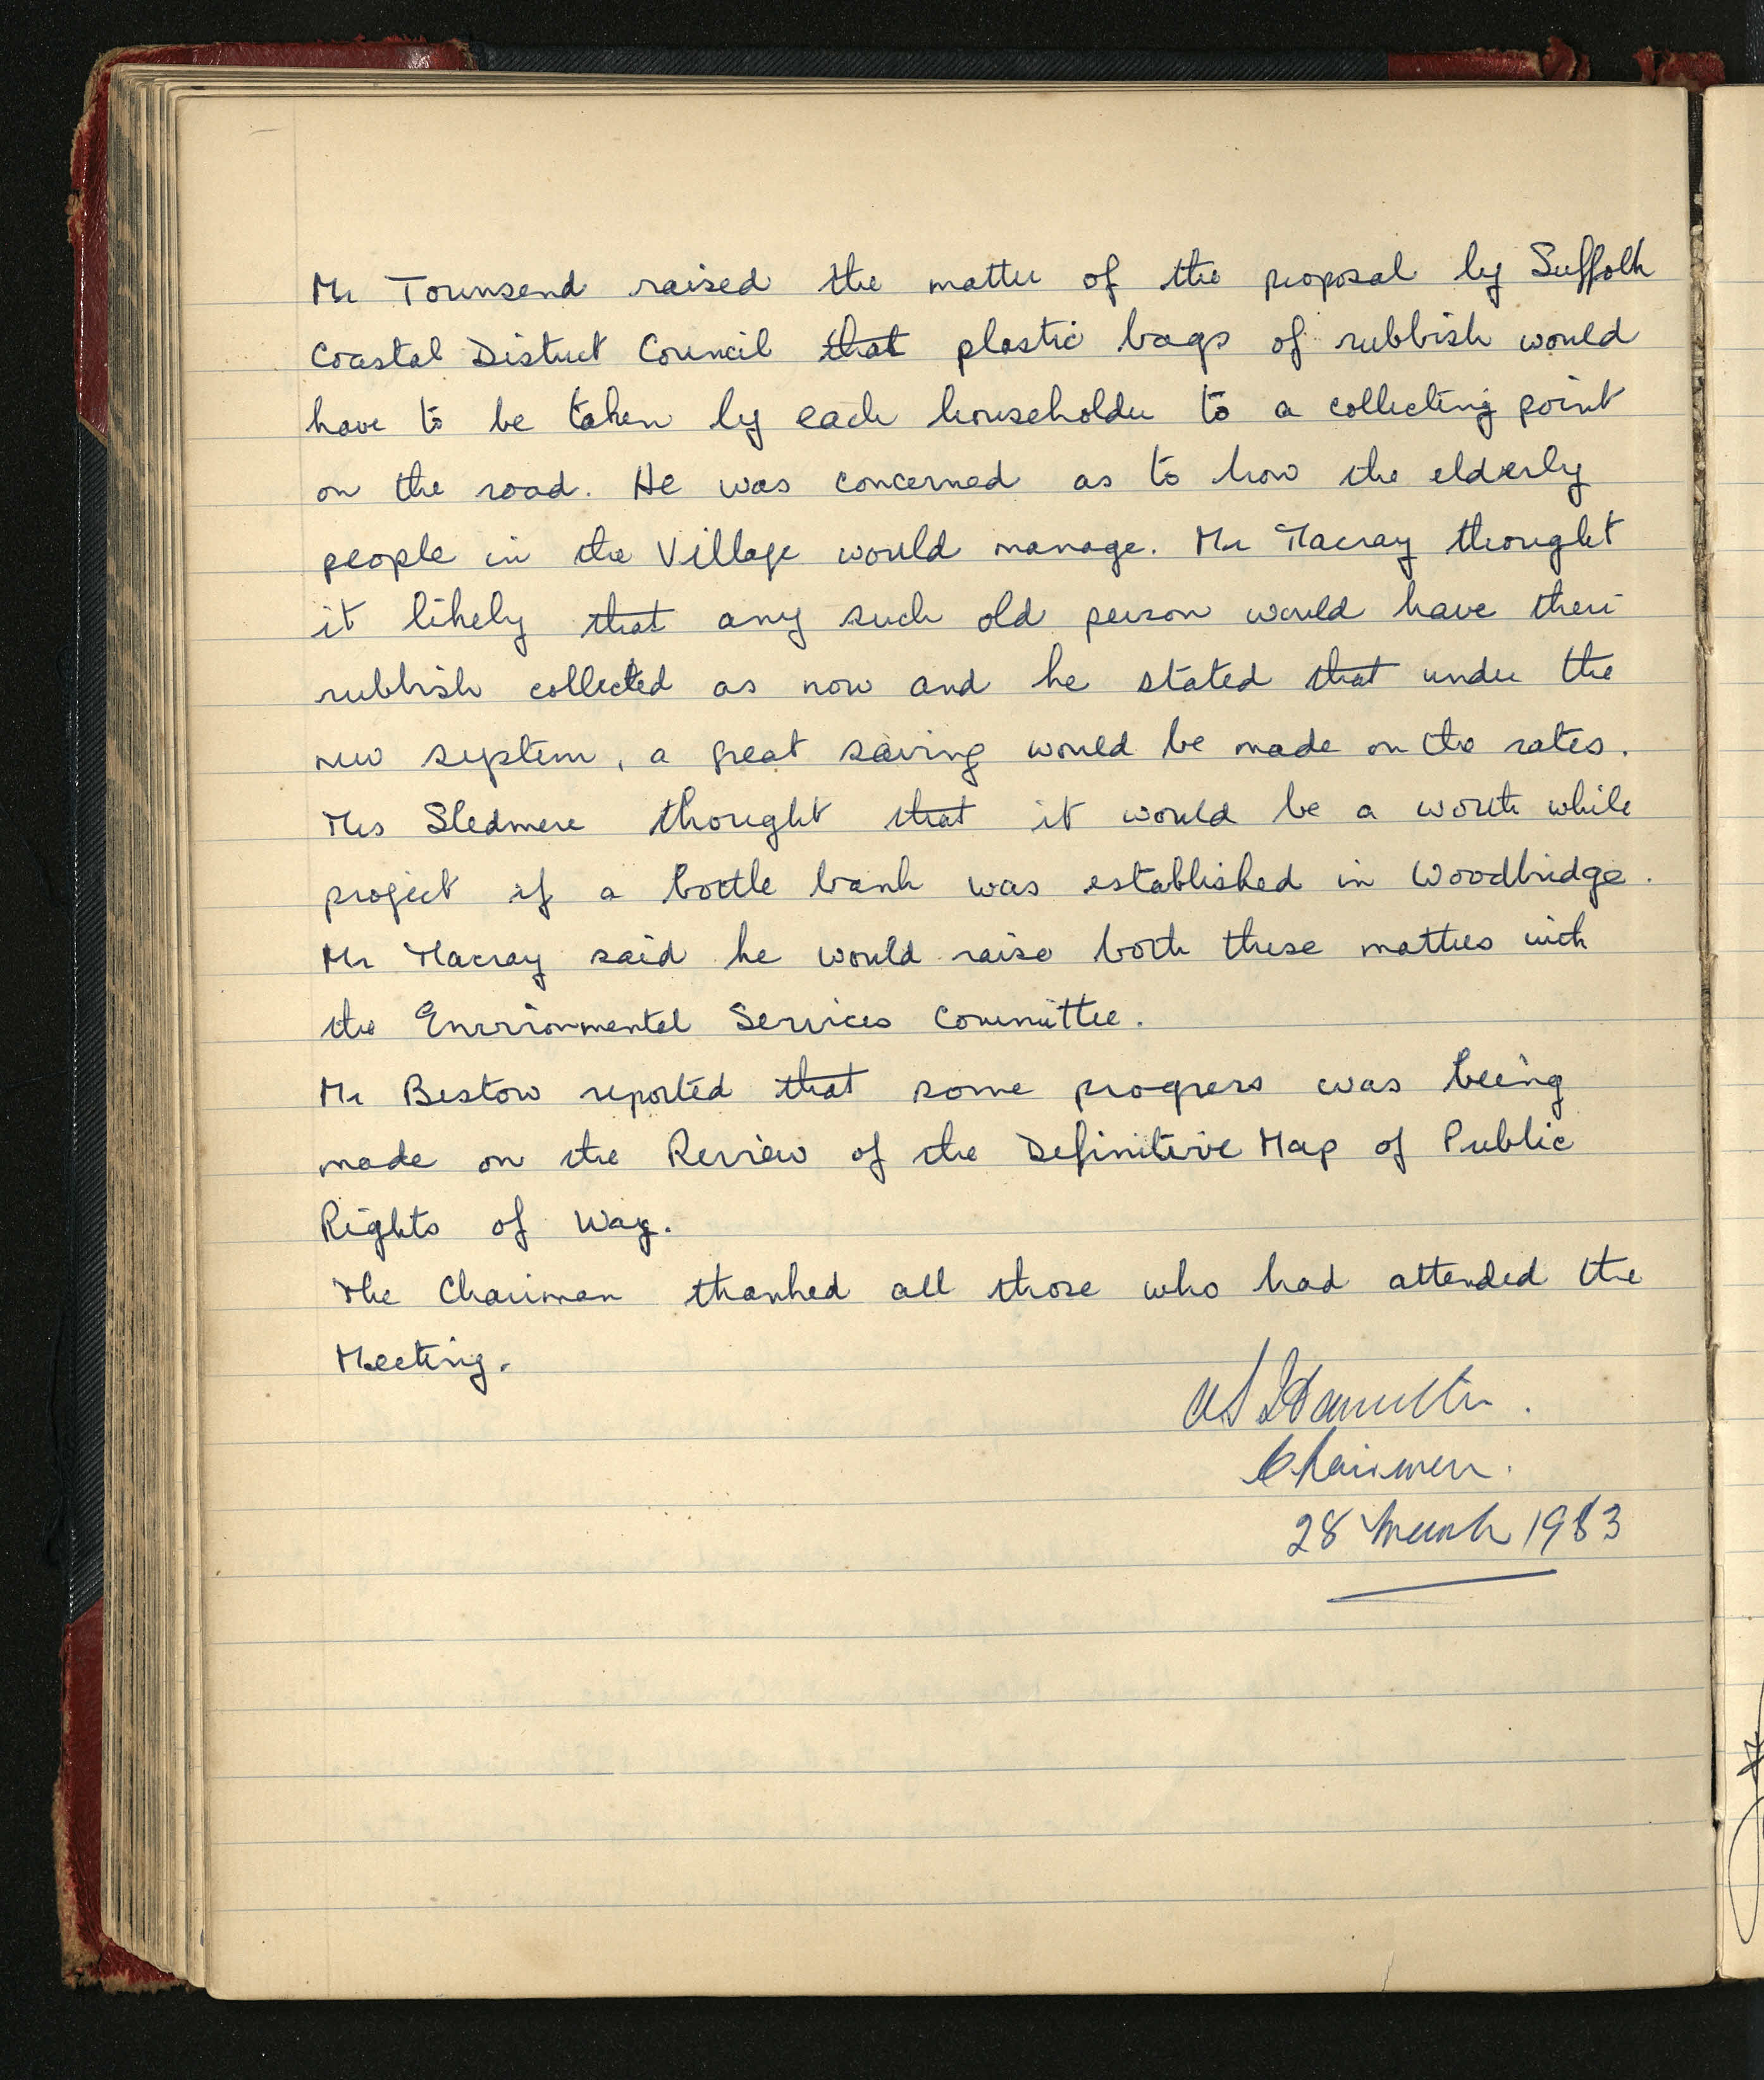 Mr Townsend raised the matter of the proposal by Suffolk
Coastal District Council that plastic bags of rubbish would
have to be taken by each householder to a collecting point
on the road. He was concerned as to how the elderly
people in the Village would manage. Mr Macray thought
it likely that any such old person would have their
rubbish collected as now and he stated that under the
new system, a great saving would be made on the rates.
Mrs Sledmere thought that it would be a worth while
project if a bottle bank was established in Woodbridge.
Mr Macray said he would raise both these matters with
the Environmental Services Committee.
Mr Bestow reported that some progress was being
made on the Review of the Definitive Map of Public
Rights of Way.
The Chairman thanked all those who had attended the
Meeting.
Hamilton.
Chairman.
28 March 1983